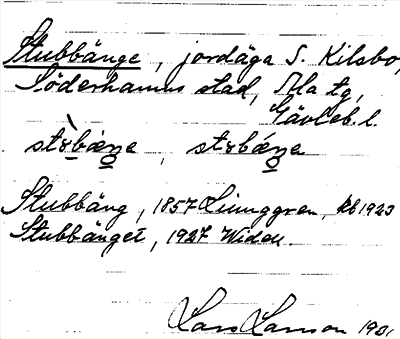 Stubbänge, jordäga S. Kilsbo,
Söderhamns stad, Ala tg,
Gävleb. l.
Stubbäng, 1857 Ljunggren, kb 1923
Stubbänget, 1927 Widén.
Lars Larson 190